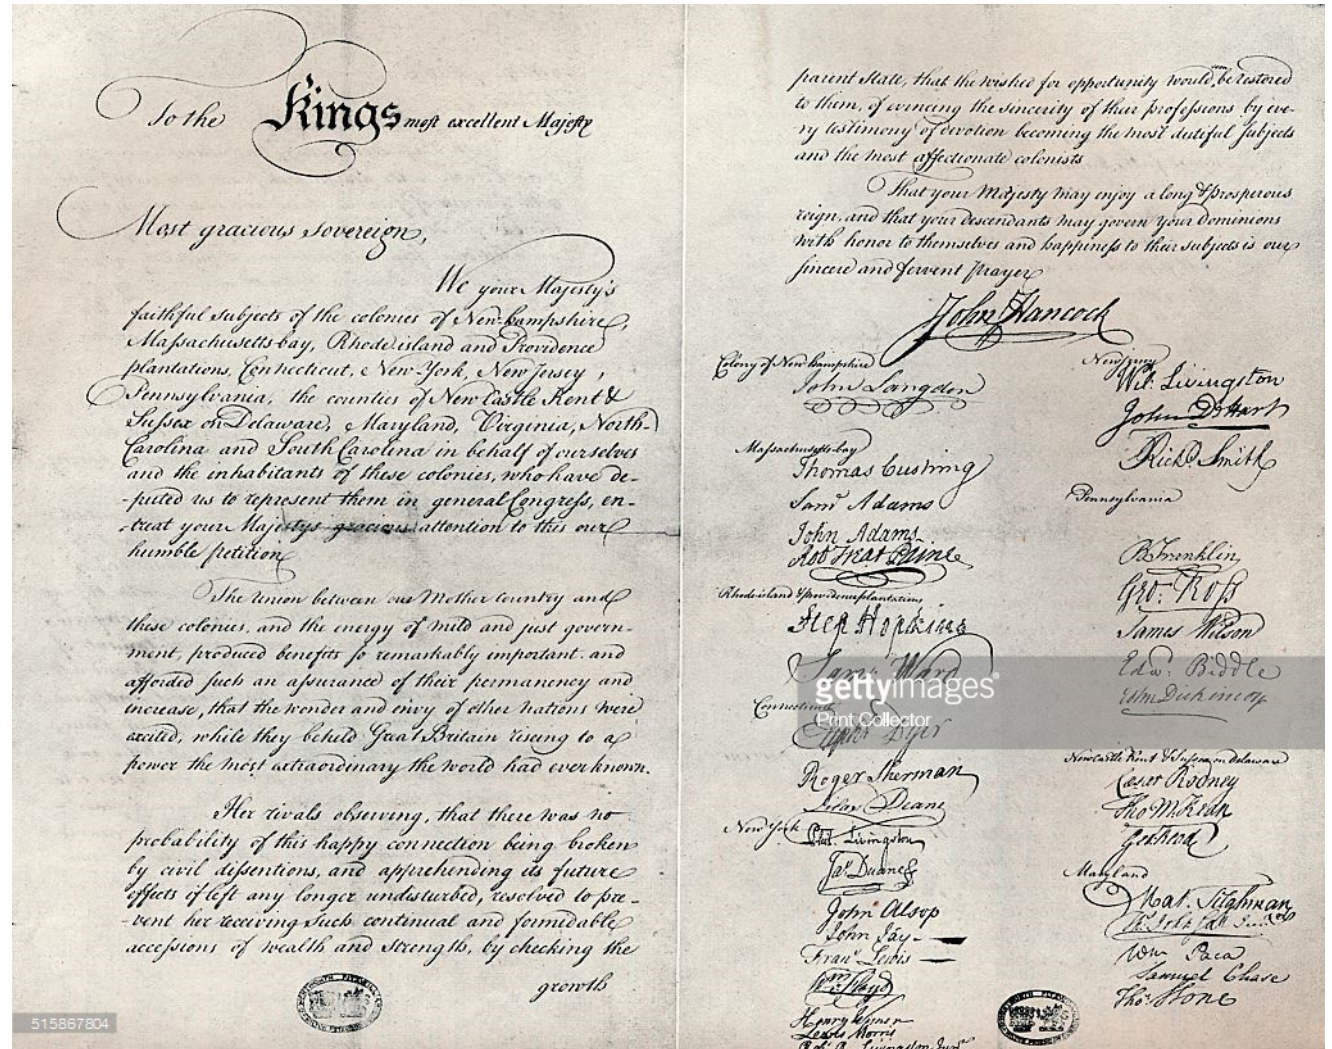 To the Kings most excellent Majesty
Most gracious sovereign,
We your Majesty's
faithful subjects of the colonies of New-hampshire,
Massachusetts-bay, Rhode island and Providence
plantations, Connecticut, New-York, New Jersey,
Pennsylvania, the counties of New Castle Kent &
Sussex on Delaware, Maryland, Virginia, North-
Carolina and South Carolina in behalf of ourselves
and the inhabitants of these colonies, who have de-
-puted us to represent them in general Congress, en-
-treat your Majestys gracious attention to this our
humble petition
The union between our Mother Country and
these colonies, and the energy of mild and just govern-
ment, produced benefits so remarkably important. and
afforded such an assurance of their permanency and
increase, that the wonder and envy of other nations were
excited, while they beheld Great Britain rising to a
power the most extraordinary the world had ever known.
Her rivals observing, that there was no
probability of this happy connection being broken
by civil dissentions, and apprehending its future
effects if left any longer undisturbed, resolved to pre-
-vent her receiving such continual and formidable
accessions of wealth and strength, by checking the
growth
parent state, that the wished for opportunity would soon be restored
to them, of evincing the sincerity of their professions by eve-
ry testimony of devotion becoming the most dutiful subjects
and the most affectionate colonists
That your Majesty may enjoy a long & prosperous
reign, and that your descendants may govern your Dominions
with honor to themselves and happiness to their subjects is our
sincere and fervent prayer
John Hancock
Colony of New hampshire
John Langdon
Massachusetts-bay
Thomas Cushing
Saml Adams
John Adams
Rob Treat Paine
Rhode island & providence plantations
Step Hopkins
Sam: Ward
Connecticut
Elipht Dyer
Roger Sherman
Silas Deane
New York
Phil. Livingston
Jas Duane
John Alsop
John Jay
Frans Lewis
Wm Floyd
Henry Wisner
Lewis Morris
Robt R Livingston Junr
New Jersey
Wil: Livingston
John D Hart
Richd Smith
Pennsylvania
B Franklin
Geo: Ross
James Wilson
Edwd: Biddle
John Dickinson
Newcastle Kent & Sussex on delaware
Caesar Rodney
Tho M:Kean
Geo Read
Maryland
Mat. Tilghman
Wm Paca
Samuel Chase
Thos Stone
gettyimages
Print Collector
515867804